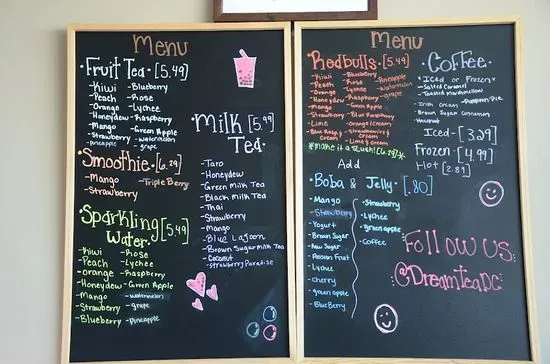 Menu
Fruit Tea [5.49]
-Kiwi -Blueberry
-Peach -Rose
-Orange -Lychee
-Honeydew -Raspberry
-Mango -Green Apple
-Strawberry -watermelon
-pineapple -grape
Smoothie [6.29]
-Mango -Triple Berry
-Strawberry
Sparkling Water [5.49]
-Kiwi -Rose
-Peach -Lychee
-orange -Raspberry
-Honeydew -Green Apple
-Mango -watermelon
-Strawberry -grape
-Blueberry -Pineapple
Milk Tea [5.99]
-Taro
-Honeydew
-Green Milk Tea
-Black Milk Tea
-Thai
-Strawberry
-Mango
-Blue Lagoon
-Brown Sugar Milk Tea
-Coconut
-Strawberry Paradise
Menu
Redbulls [5.49]
-Kiwi -Blueberry
-Peach -Rose -Pineapple
-Orange -Lychee -watermelon
-Honeydew -Raspberry -grape
-Mango -Green Apple
-Strawberry -Blue Raspberry
-Lime -Orange/Cream
-Blue Rasp & cream -Strawberries & cream
-Lime & cream
*Make it a slush! [6.29]*
Add
Boba & Jelly [.80]
-Mango
-Strawberry
-Yogurt
-Brown Sugar
-Raw Sugar
-Passion Fruit
-Lychee
-cherry
-green apple
-BlueBerry
-Strawberry
-Lychee
-green apple
-Coffee
Coffee
*Iced or Frozen*
-Salted Caramel
-Toasted Marshmallow
-Irish Cream -Pumpkin Pie
-Brown Sugar Cinnamon
-Hazelnut
Iced- [3.29]
Frozen- [4.99]
Hot [2.89]
Follow us
@DreamteaDC